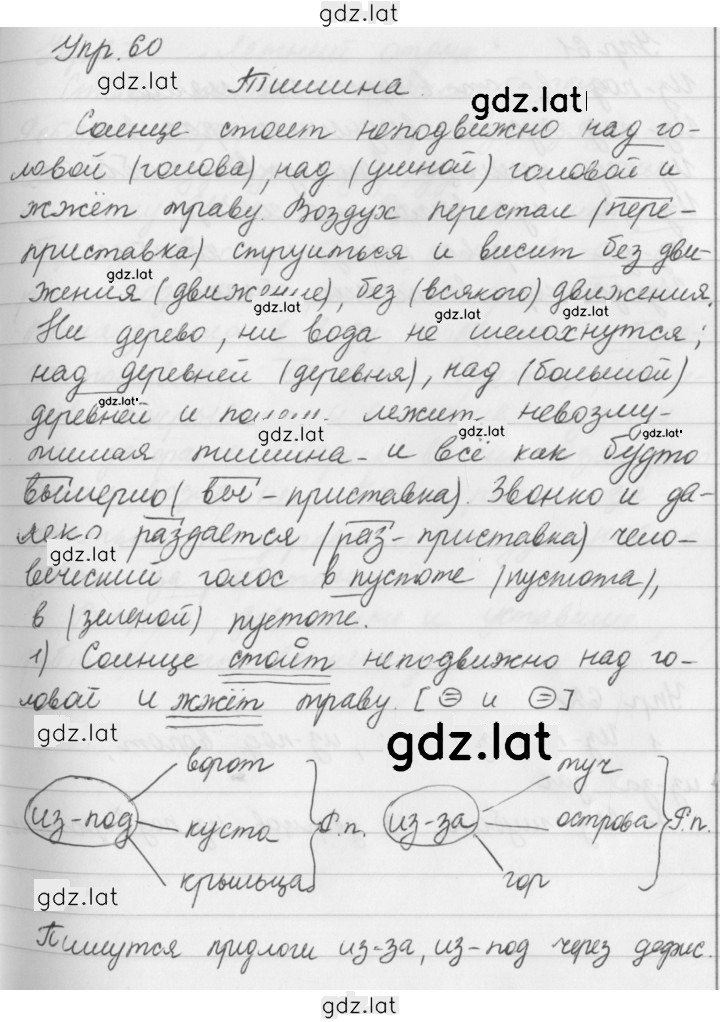 gdz.lat
Упр. 60
gdz.lat
Тишина.
gdz.lat
Солнце стоит неподвижно над го-
ловой (голова), над (умной) головой и
жжёт траву. Воздух перестал (пере-
приставка) струиться и висит без дви-
gdz.lat
жения (движение), без (всякого) движения.
gdz.lat gdz.lat
Ни дерево, ни вода не шелохнутся;
над деревней (деревня), над (большой)
gdz.lat
деревней и лежит невозму-
gdz.lat gdz.lat
тимая тишина - и всё как будто
вымерло (вы - приставка). Звонко и да-
леко раздаётся (раз - приставка) чело-
gdz.lat
веческий голос в пустоте (пустота),
в (зеленой) пустоте.
1) Солнце стоит неподвижно над го-
ловой и жжёт траву. [= и =]
gdz.lat gdz.lat
ворот туч
из-под куста Р.п. из-за острова Р.п.
крыльца гор
gdz.lat
Пишутся предлоги из-за, из-под через дефис.
gdz.lat